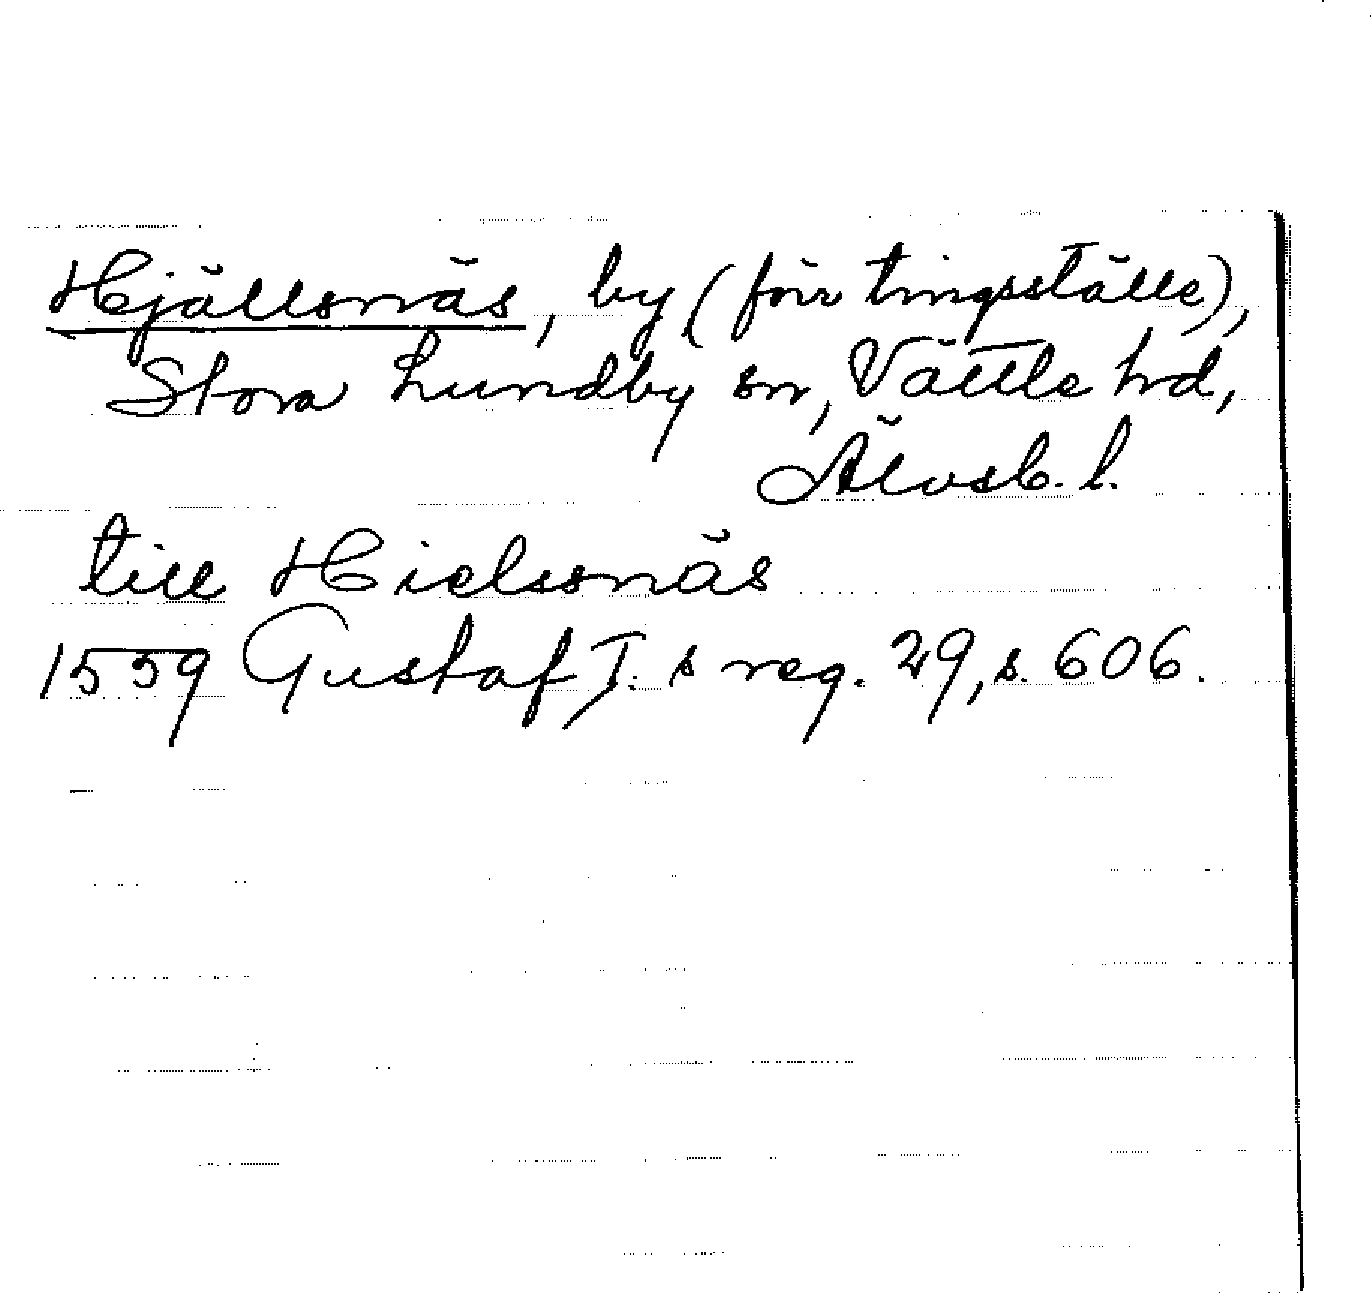 Hjällsnäs, by (förr tingsställe),
Stora Lundby sn, Vättle hd,
Älvsb. l.
till Hielssnäs
1559 Gustaf I.s reg. 29, s. 606.